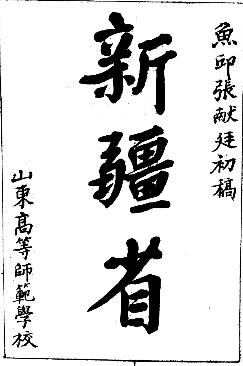 魚邱張献廷初稿
新疆省
山東高等師範學校